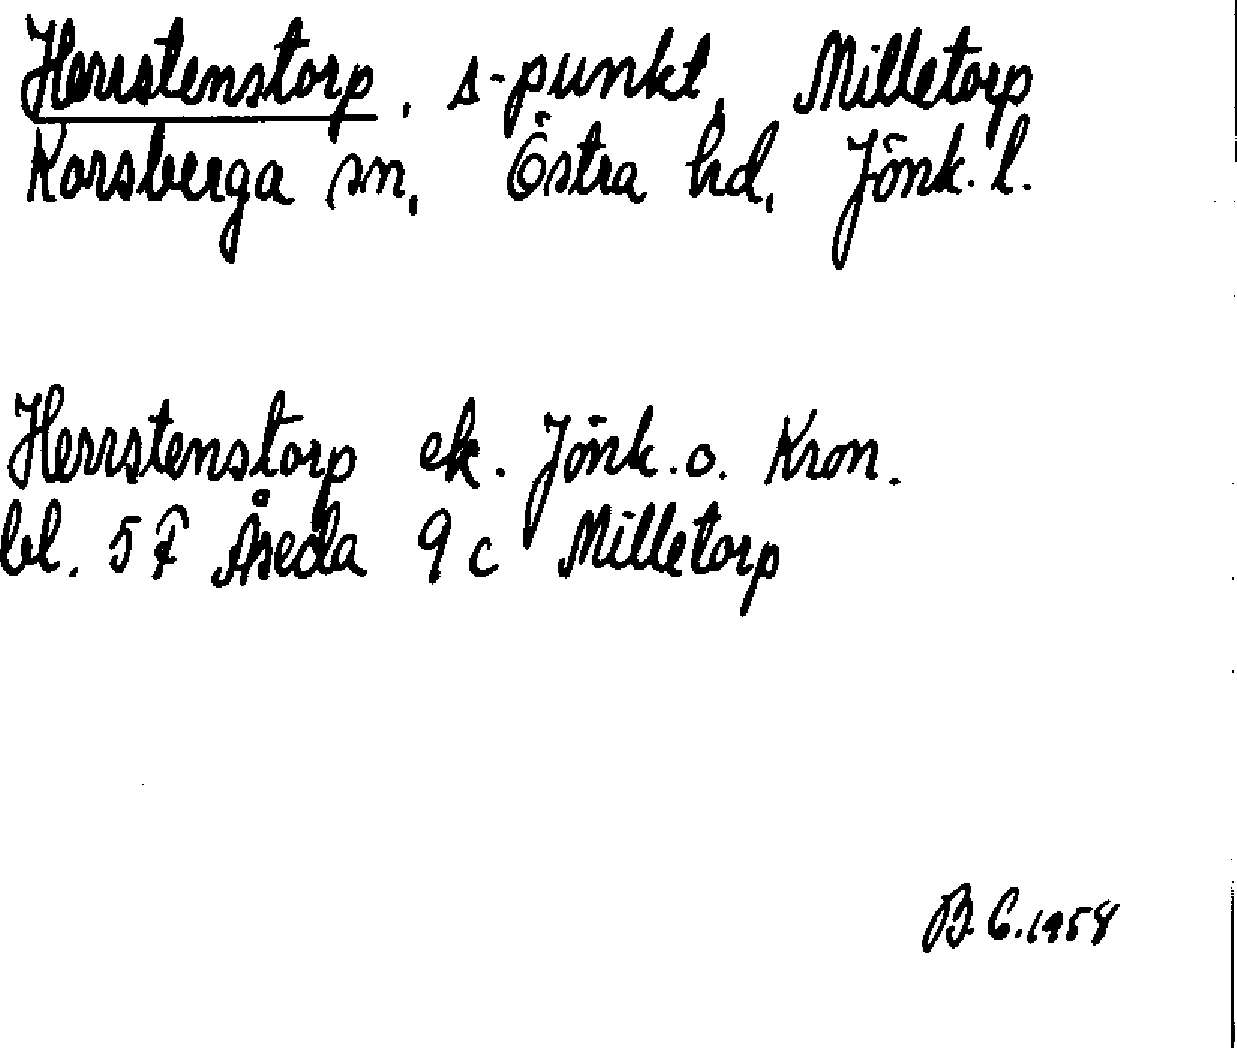 Herrstenstorp, s-punkt, Milletorp
Korsberga sn, Östra hd, Jönk. l.
Herrstenstorp ek. Jönk. o. Kron.
bl. 5 F Åseda 9 c Milletorp
B G. 1958